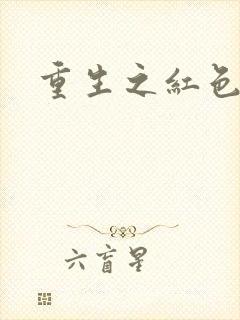 重生之紅色
六盲星